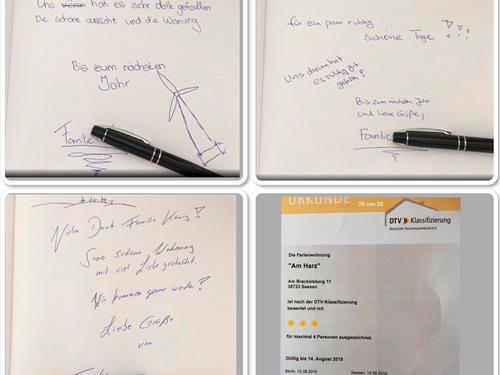 Uns hat es sehr dolle gefallen
Die schöne aussicht und die Wonung
Bis zum nächsten
Johr
Familie
für ein paar richtig
schöne Tage !!!
Uns dreien hat
es richtig gut
gefallen!
Bis zum nächsten Jahr
und liebe Grüße,
Familie
Vielen Dank Familie König!
Eine schöne Wohnung
mit viel Liebe gestaltet.
Wir kommen gerne wieder!
Liebe Grüße
von
URKUNDE 20 von 20
DTV Klassifizierung
Deutscher Tourismusverband e.V.
Die Ferienwohnung
"Am Harz"
Am Brackelsberg 11
38723 Seesen
ist nach der DTV-Klassifizierung
bewertet und mit
für maximal 4 Personen ausgezeichnet.
Gültig bis 14. August 2019
Berlin, 15.08.2016 Seesen, 15.08.2016